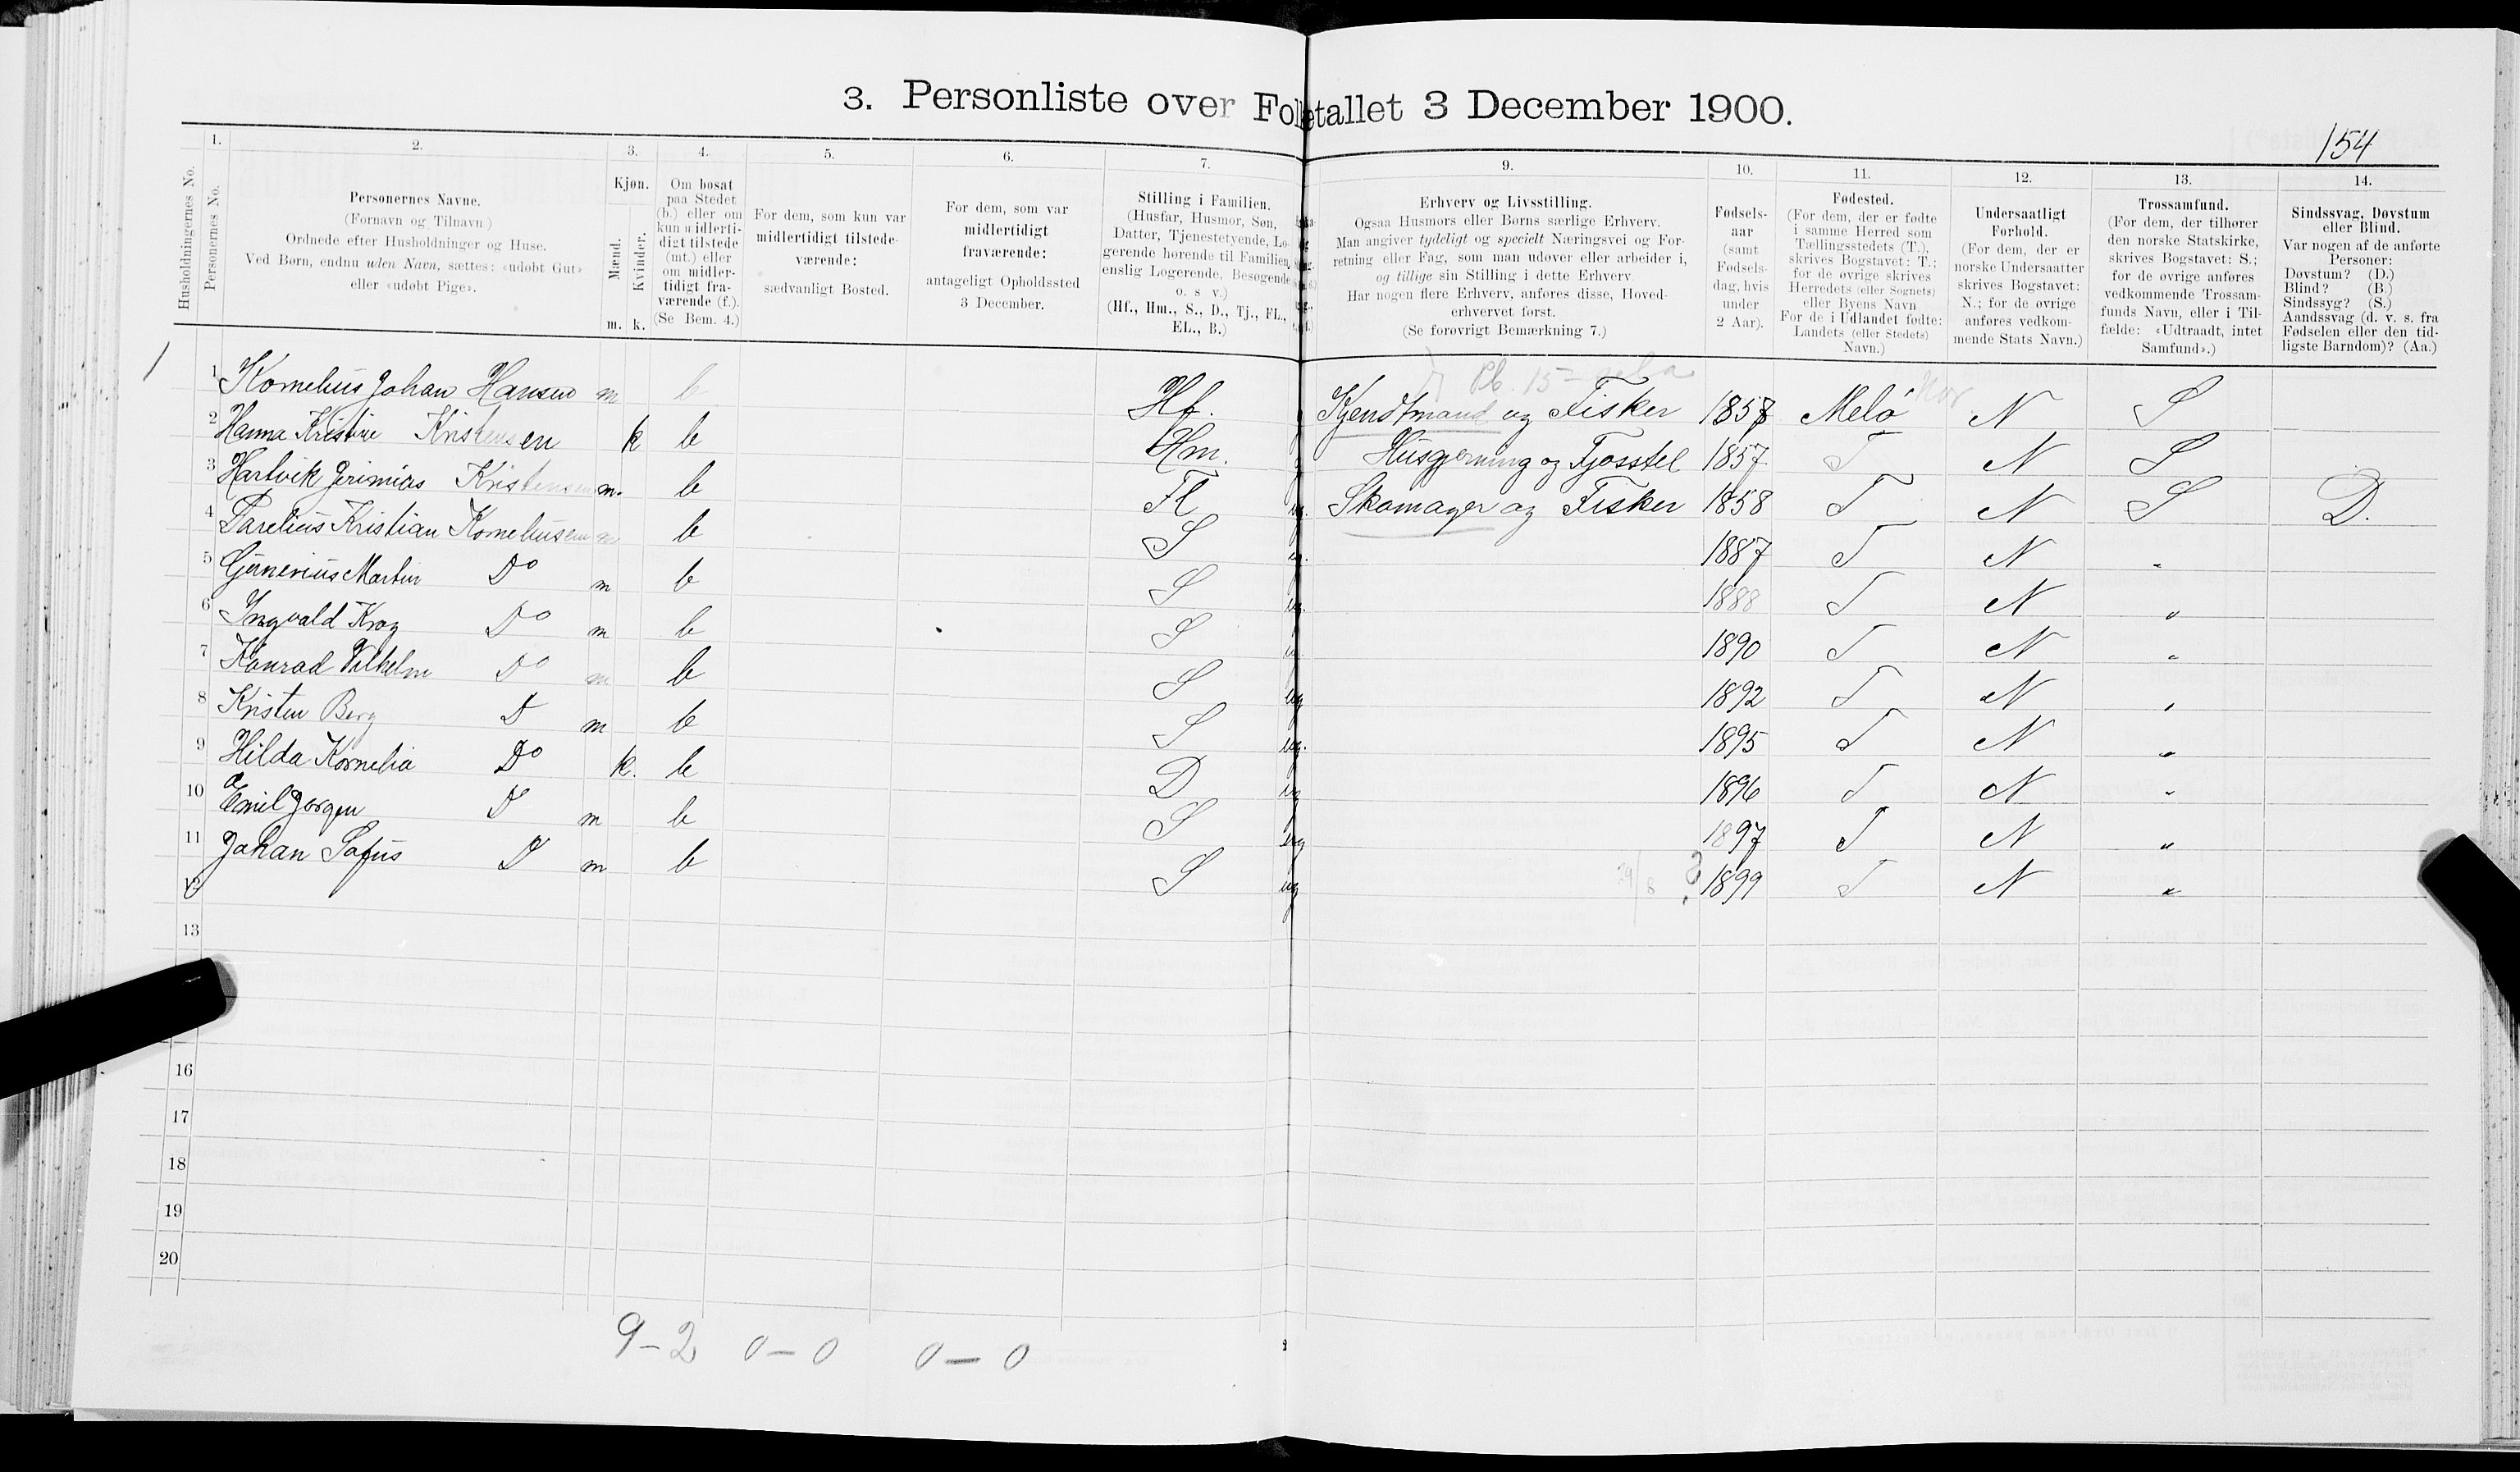 3. Personliste over Folketallet 3 December 1900.
154
Husholdningernes No.
1.
Personernes No.
2.
Personernes Navne.
(Fornavn og Tilnavn.)
Ordnede efter Husholdninger og Huse.
Ved Børn, endnu uden Navn, sættes: «udøbt Gut»
eller «udøbt Pige».
3.
Kjøn.
Mænd.
Kvinder.
m. k.
4.
Om bosat
paa Stedet
(b.) eller om
kun midlerti-
digt tilstede
(mt.) eller
om midler-
tidigt fra-
værende (f.).
(Se Bem. 4.)
5.
For dem, som kun var
midlertidigt tilstede-
værende:
sædvanligt Bosted.
6.
For dem, som var
midlertidigt
fraværende:
antageligt Opholdssted
3 December.
7.
Stilling i Familien.
(Husfar, Husmor, Søn,
Datter, Tjenestetyende, Lo-
gerende hørende til Familien,
enslig Logerende, Besøgende
o. s v.)
(Hf., Hm., S., D., Tj., FL.,
EL., B.)
9.
Erhverv og Livsstilling.
Ogsaa Husmors eller Børns særlige Erhverv.
Man angiver tydeligt og specielt Næringsvei og For-
retning eller Fag, som man udøver eller arbeider i,
og tillige sin Stilling i dette Erhverv.
Har nogen flere Erhverv, anføres disse, Hoved-
erhvervet først.
(Se forøvrigt Bemærkning 7.)
10.
Fødsels-
aar
(samt
Fødsels-
dag, hvis
under
2 Aar).
11.
Fødested.
(For dem, der er fødte
i samme Herred som
Tællingsstedets (T.),
skrives Bogstavet: T.;
for de øvrige skrives
Herredets (eller Sognets)
eller Byens Navn
For de i Udlandet fødte:
Landets (eller Stedets)
Navn.)
12.
Undersaatligt
Forhold.
(For dem, der er
norske Undersaatter
skrives Bogstavet:
N.; for de øvrige
anføres vedkom-
mende Stats Navn.)
13.
Trossamfund.
(For dem, der tilhører
den norske Statskirke,
skrives Bogstavet: S.;
for de øvrige anføres
vedkommende Trossam-
funds Navn, eller i Til-
fælde: «Udtraadt, intet
Samfund».)
14.
Sindssvag, Døvstum
eller Blind.
Var nogen af de anførte
Personer:
Døvstum? (D.)
Blind? (B.)
Sindssyg? (S.)
Aandssvag (d. v. s. fra
Fødselen eller den tid-
ligste Barndom)? (Aa.)
1 1 Kornelius Johan Hansen m b Hf. Kjendtmand og Fisker 1857 Melø N S
2 Hanna Kristine Kristensen k b Hm. Husgjerning og Fjøsstel 1857 T N S
3 Hartvik Jerimias Kristensen m. b Fl ug. Skomager og Fisker 1858 T N S D.
4 Parelius Kristian Korneliusen m b S ug. 1887 T N "
5 Gunerius Martin Do m b S ug. 1888 T N "
6 Ingvald Krog Do m b S u 1890 T N "
7 Konrad Vilhelm Do m b S ug 1892 T N "
8 Kristen Berg D m b S ug. 1895 T N "
9 Hilda Kornelia Do k. b D ug 1896 T N "
10 Emil Jørgen D m b S ug 1897 T N "
11 Johan Sofus D m b S ug 29/8 1899 T N "
12
13
16
17
18
19
20
9-2 0-0 0-0